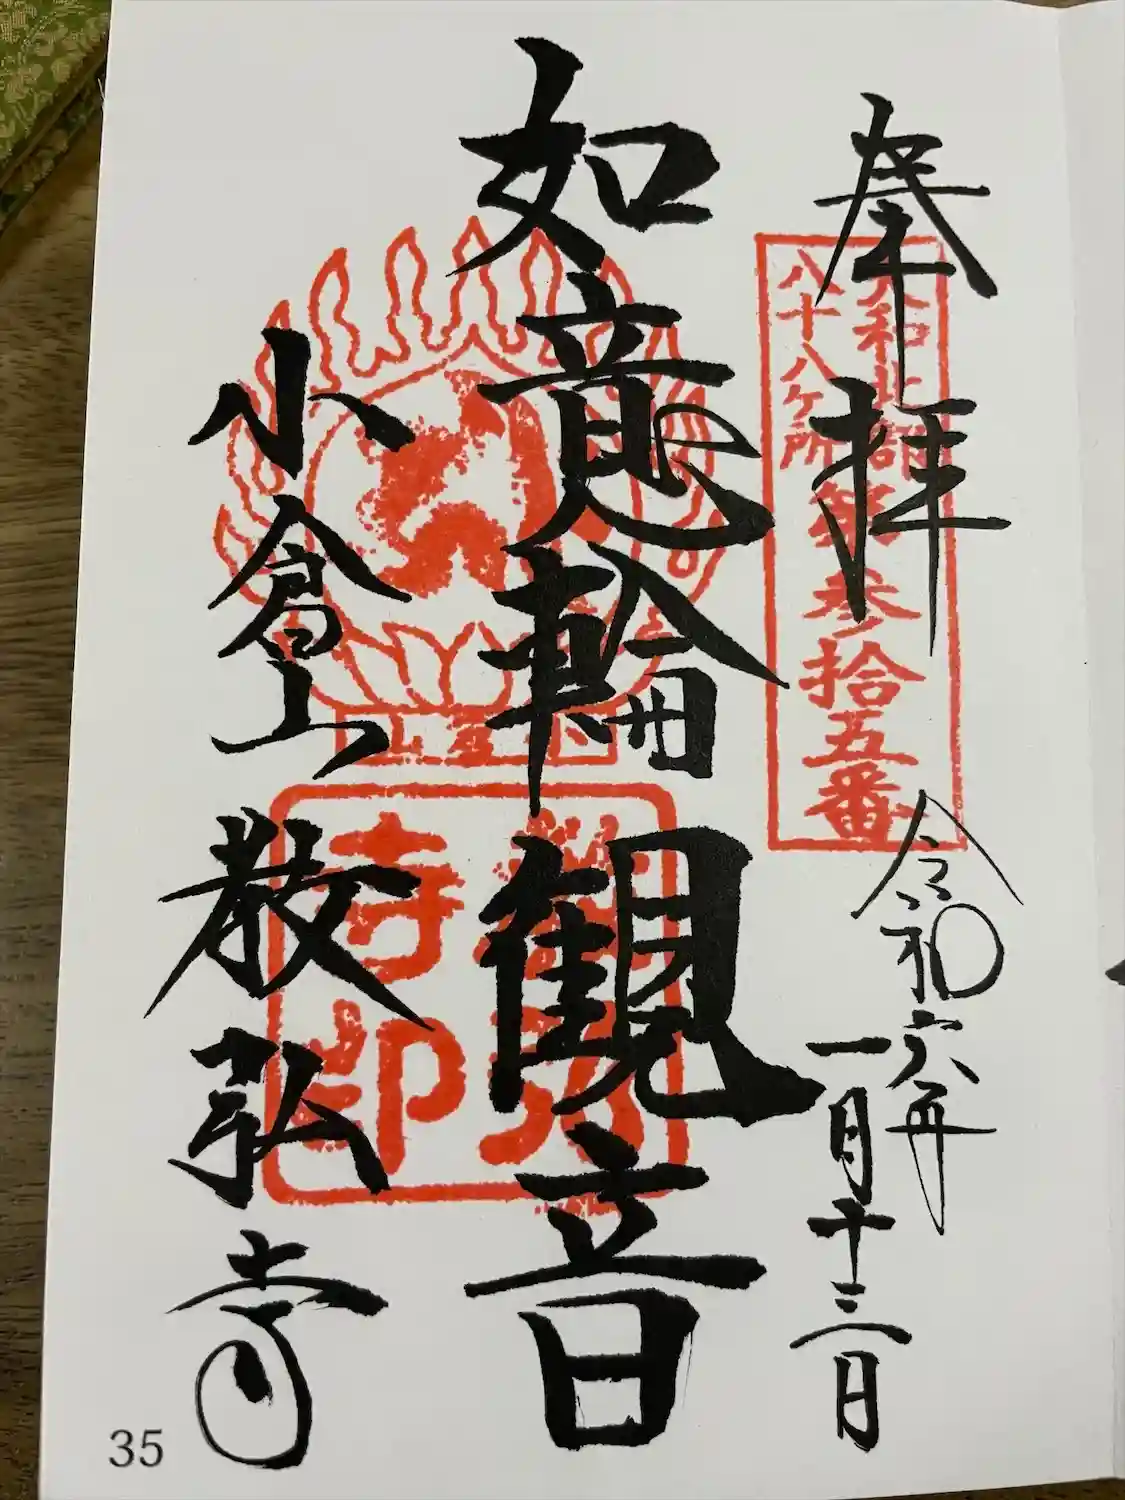 奉拝
大和北部
八十八ヶ所
第参拾五番
令和六年
一月十三日
如意輪観音
小倉山
教弘寺
寺印
35